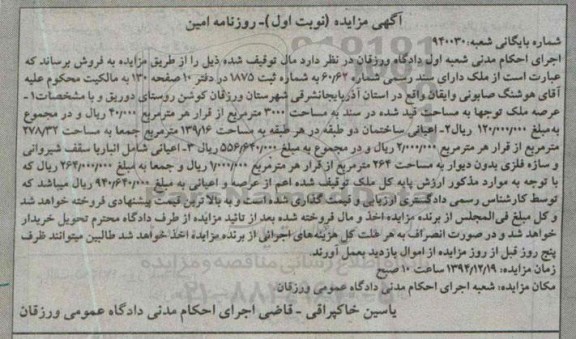 آگهی مزایده (نوبت اول)- روزنامه امین
شماره بایگانی شعبه: ۹۴۰۰۳۰
اجرای احکام مدنی شعبه اول دادگاه ورزقان در نظر دارد مال توقیف شده ذیل را از طریق مزایده به فروش برساند که
عبارت است از ملک دارای سند رسمی شماره ۶۰/۶۲ به شماره ثبت ۱۸۷۵ در دفتر ۱۰ صفحه ۱۳۰ به مالکیت محکوم علیه
آقای هوشنگ صابونی وایقان واقع در استان آذربایجانشرقی شهرستان ورزقان کوشن روستای دوریق و با مشخصات ۱-
عرصه ملک توجها به مساحت قید شده در سند به مساحت ۳۰۰۰ مترمربع از قرار هر مترمربع ۴۰/۰۰۰ ریال و در مجموع
به مبلغ ۱۲۰/۰۰۰/۰۰۰ ریال ۲- اعیانی ساختمان دو طبقه در هر طبقه به مساحت ۱۳۹/۱۶ مترمربع جمعا به مساحت ۲۷۸/۳۲
مترمربع از قرار هر مترمربع ۲/۰۰۰/۰۰۰ ریال و در مجموع به مبلغ ۵۵۶/۶۴۰/۰۰۰ ریال ۳- اعیانی شامل انباربا سقف شیروانی
و سازه فلزی بدون دیوار به مساحت ۲۶۴ مترمربع از قرار هر مترمربع ۱/۰۰۰/۰۰۰ ریال و جمعا به مبلغ ۲۶۴/۰۰۰/۰۰۰ ریال که
با توجه به موارد مذکور ارزش پایه کل ملک توقیف شده اعم از عرصه و اعیانی به مبلغ ۹۴۰/۶۴۰/۰۰۰ ریال میباشد که
توسط کارشناس رسمی دادگستری ارزیابی و قیمت گذاری شده است و به بالاترین قیمت پیشنهادی فروخته خواهد شد
و کل مبلغ فی المجلس از برنده مزایده اخذ و مال فروخته شده بعد از تائید مزایده از طرف دادگاه محترم تحویل خریدار
خواهد شد و در صورت انصراف به هر علت کل هزینه های اجرائی از برنده مزایده اخذ خواهد شد طالبین میتوانند ظرف
پنج روز قبل از روز مزایده از اموال بازدید بعمل آورند
زمان مزایده: ۱۳۹۴/۱۲/۱۹ ساعت ۱۰ صبح
مکان مزایده: شعبه اجرای احکام مدنی دادگاه عمومی ورزقان
یاسین خاکپراقی - قاضی اجرای احکام مدنی دادگاه عمومی ورزقان